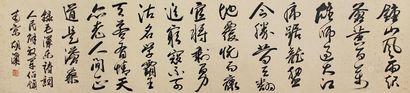 鐘山風雨起
蒼黃百萬
雄師過大江
虎踞龍盤
今勝昔天翻
地覆慨而慷
宜將剩勇
追窮寇不可
沽名學霸王
天若有情天
亦老人間正
道是滄桑
錄毛澤東詩詞
人民解放軍佔領
南京 胡